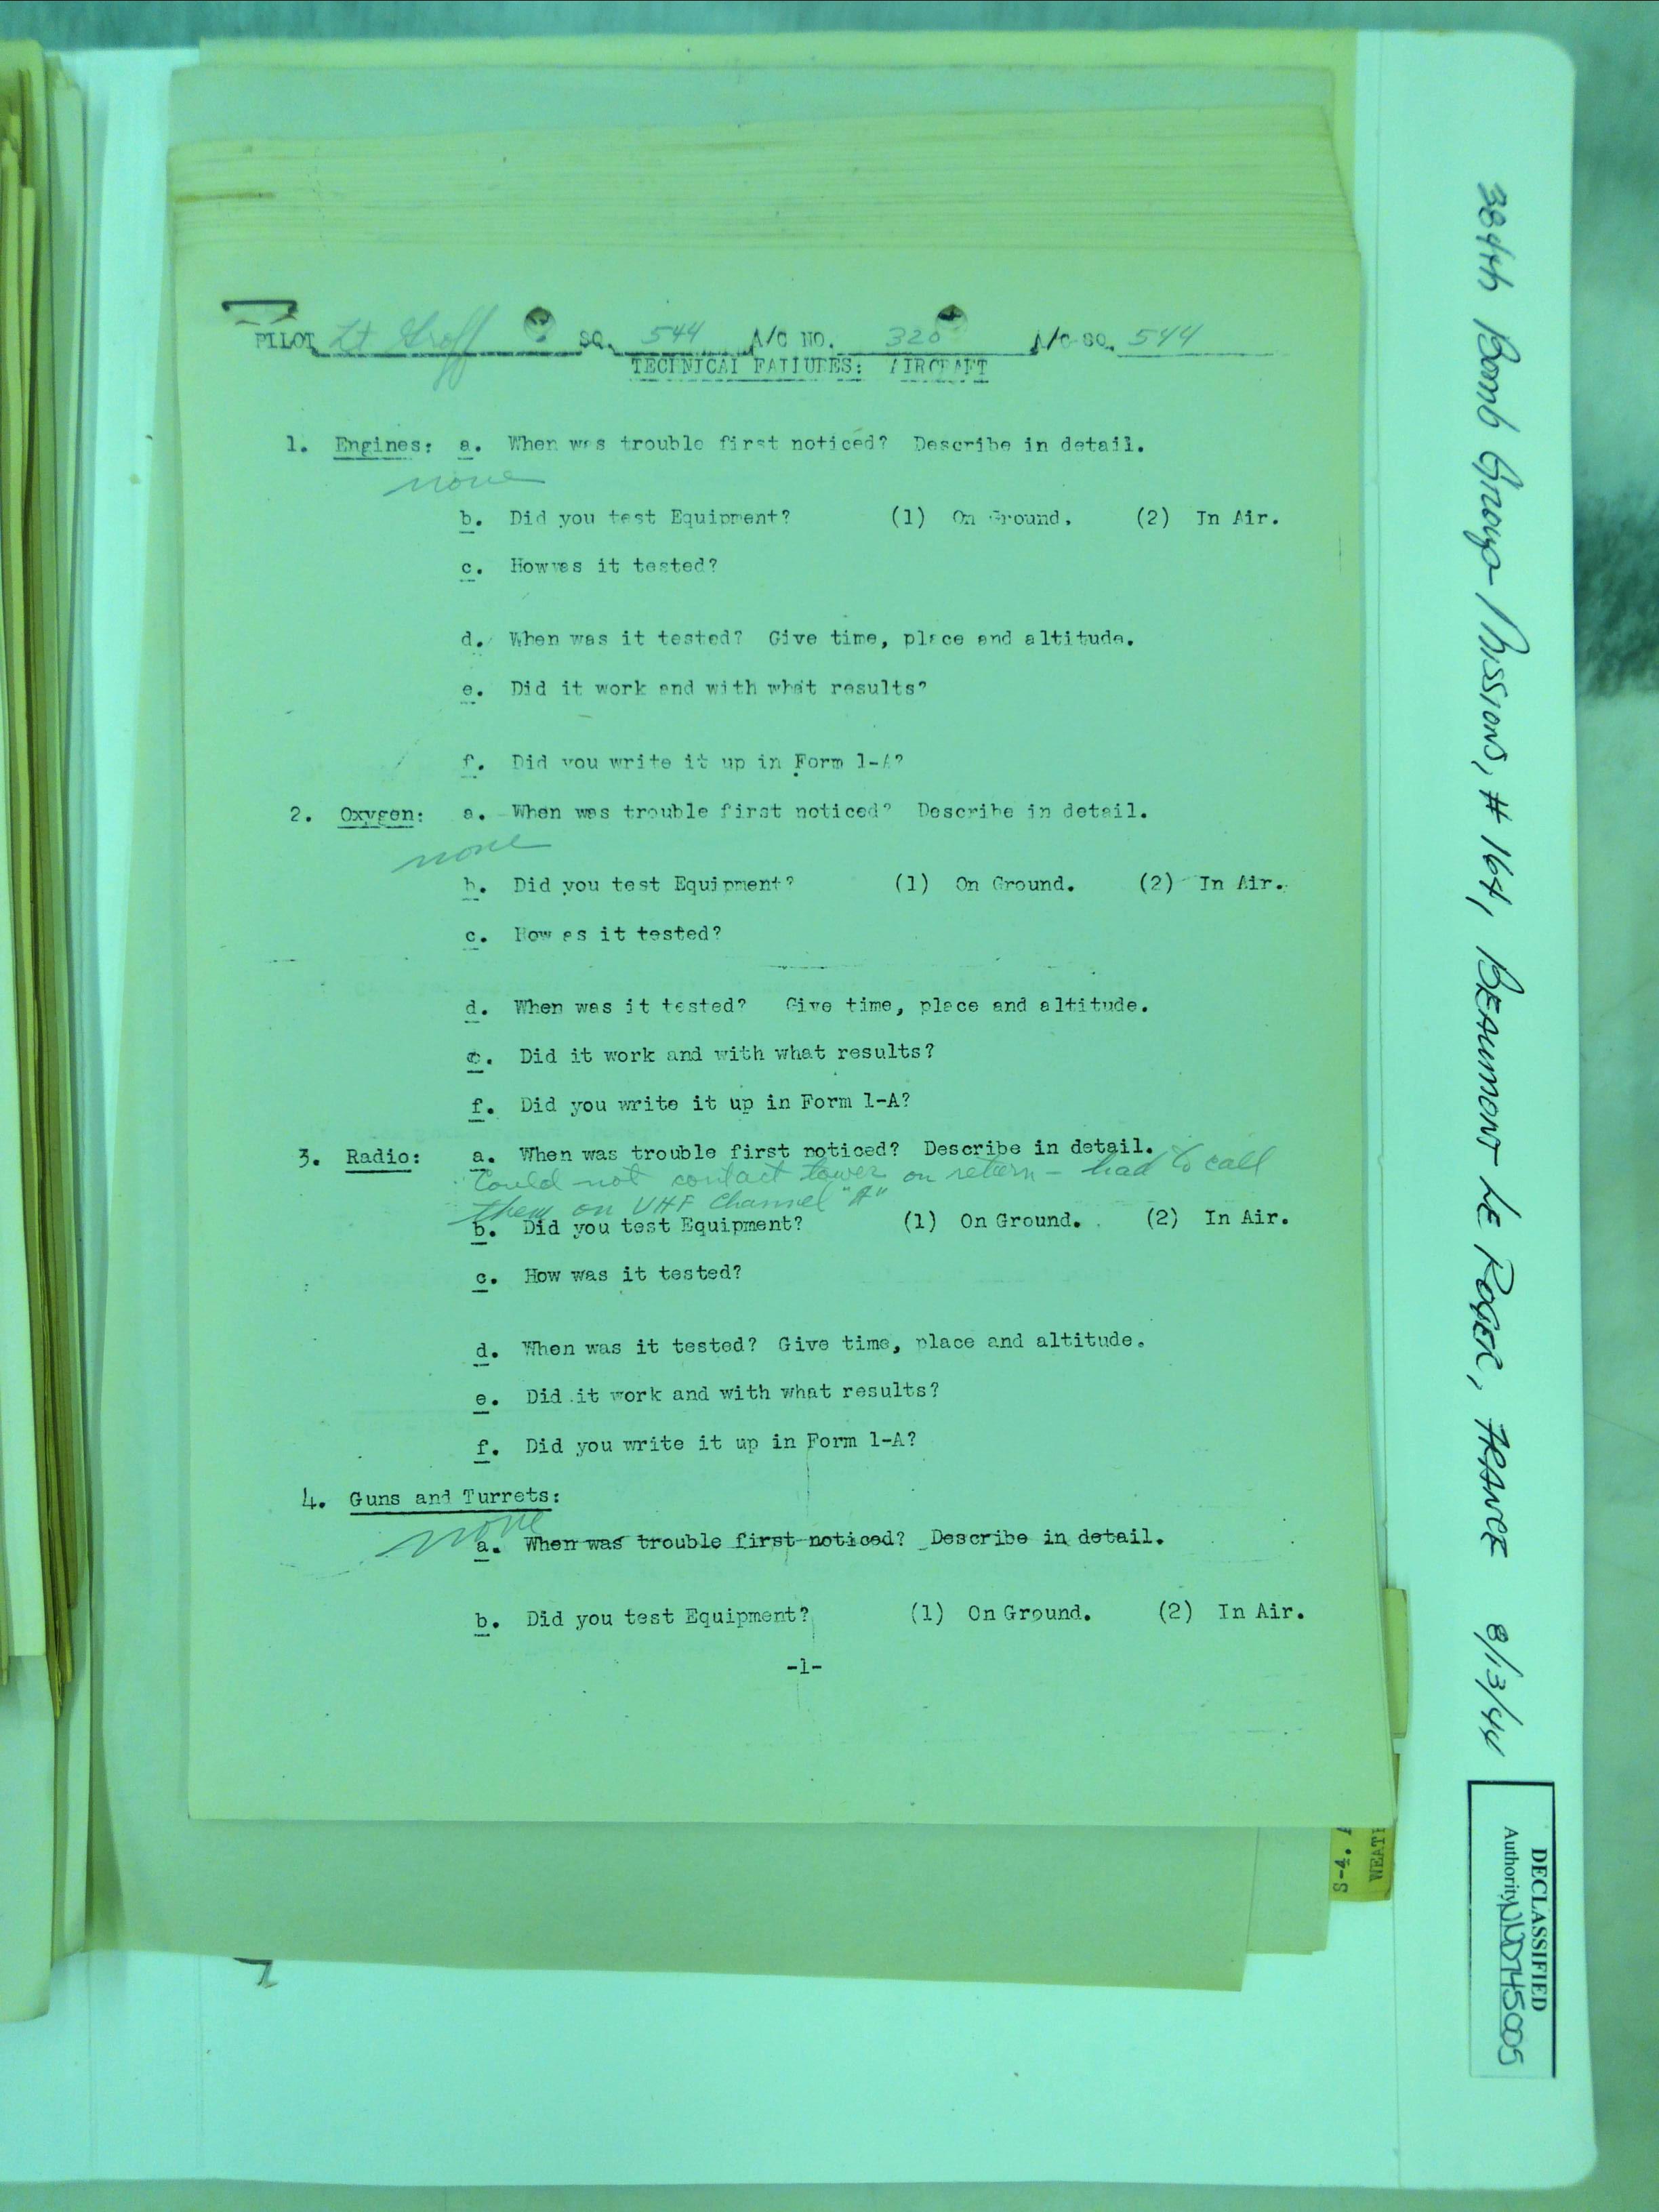 PILOT Lt Groff SQ. 544 A/C NO. 320 A/C SQ. 544
TECHNICAL FAILURES: AIRCRAFT
1. Engines: a. When was trouble first noticed? Describe in detail.
none
b. Did you test Equipment? (1) On Ground. (2) In Air.
c. How was it tested?
d. When was it tested? Give time, place and altitude.
e. Did it work and with what results?
f. Did you write it up in Form 1-A?
2. Oxygen: a. When was trouble first noticed? Describe in detail.
none
b. Did you test Equipment? (1) On Ground. (2) In Air.
c. How as it tested?
d. When was it tested? Give time, place and altitude.
e. Did it work and with what results?
f. Did you write it up in Form 1-A?
3. Radio: a. When was trouble first noticed? Describe in detail.
Could not contact tower on return - had to call
them on VHF Channel "A"
b. Did you test Equipment? (1) On Ground. (2) In Air.
c. How was it tested?
d. When was it tested? Give time, place and altitude.
e. Did it work and with what results?
f. Did you write it up in Form 1-A?
4. Guns and Turrets:
none
a. When was trouble first noticed? Describe in detail.
b. Did you test Equipment? (1) On Ground. (2) In Air.
-1-
384th Bomb Group - Missions, # 164, BEAUMONT LE ROGER, FRANCE 8/13/44
DECLASSIFIED
Authority NND745005
S-4.
WEAT